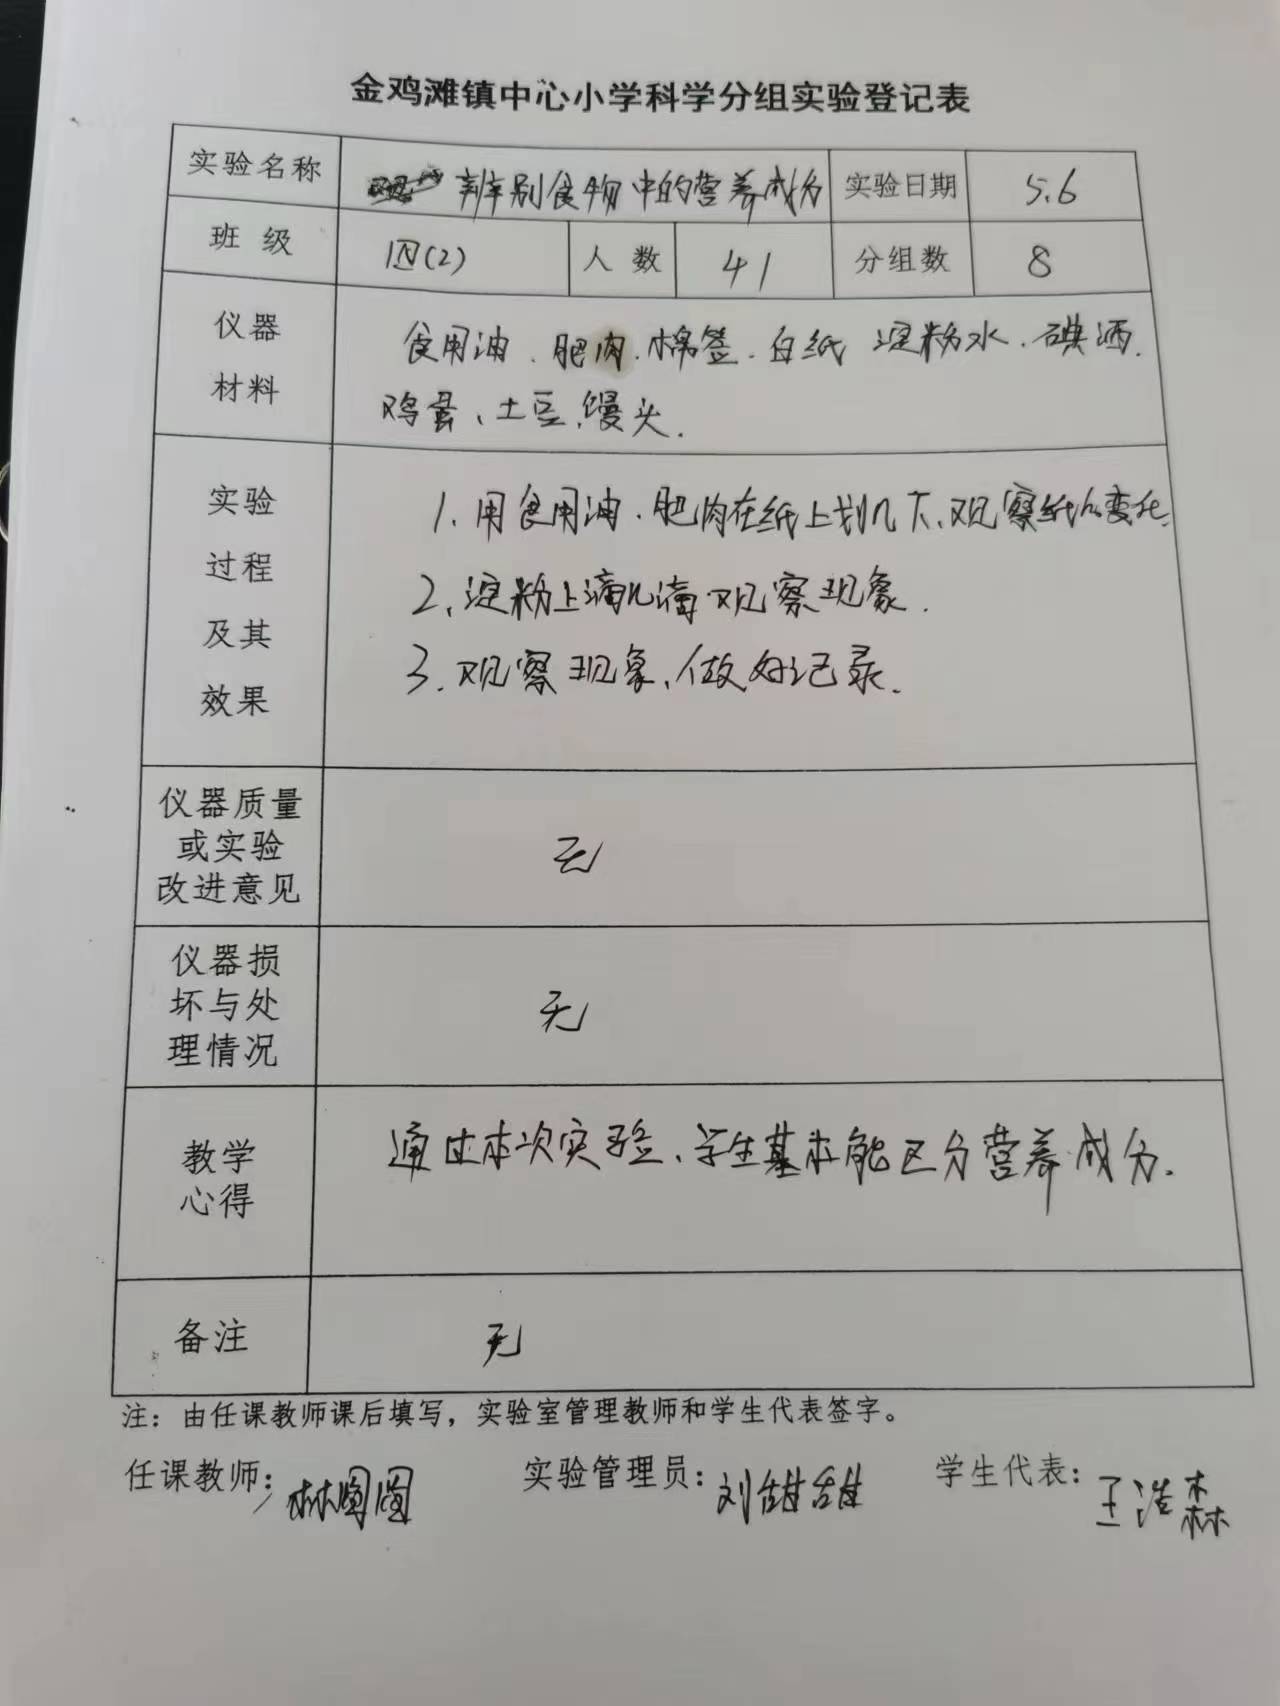 金鸡滩镇中心小学科学分组实验登记表
实验名称 辨别食物中的营养成分 实验日期 5.6
班 级 四(2) 人 数 41 分组数 8
仪器
材料
食用油、肥肉、棉签、白纸 淀粉水、碘酒、
鸡蛋、土豆、馒头.
实验
过程
及其
效果
1、用食用油、肥肉在纸上划几下、观察纸的变化
2、淀粉上滴几滴观察现象.
3.观察现象、做好记录.
仪器质量
或实验
改进意见
无
仪器损
坏与处
理情况
无
教学
心得
通过本次实验、学生基本能区分营养成分.
备注
无
注：由任课教师课后填写，实验室管理教师和学生代表签字。
任课教师：林圆圆 实验管理员：刘甜甜 学生代表：王浩森